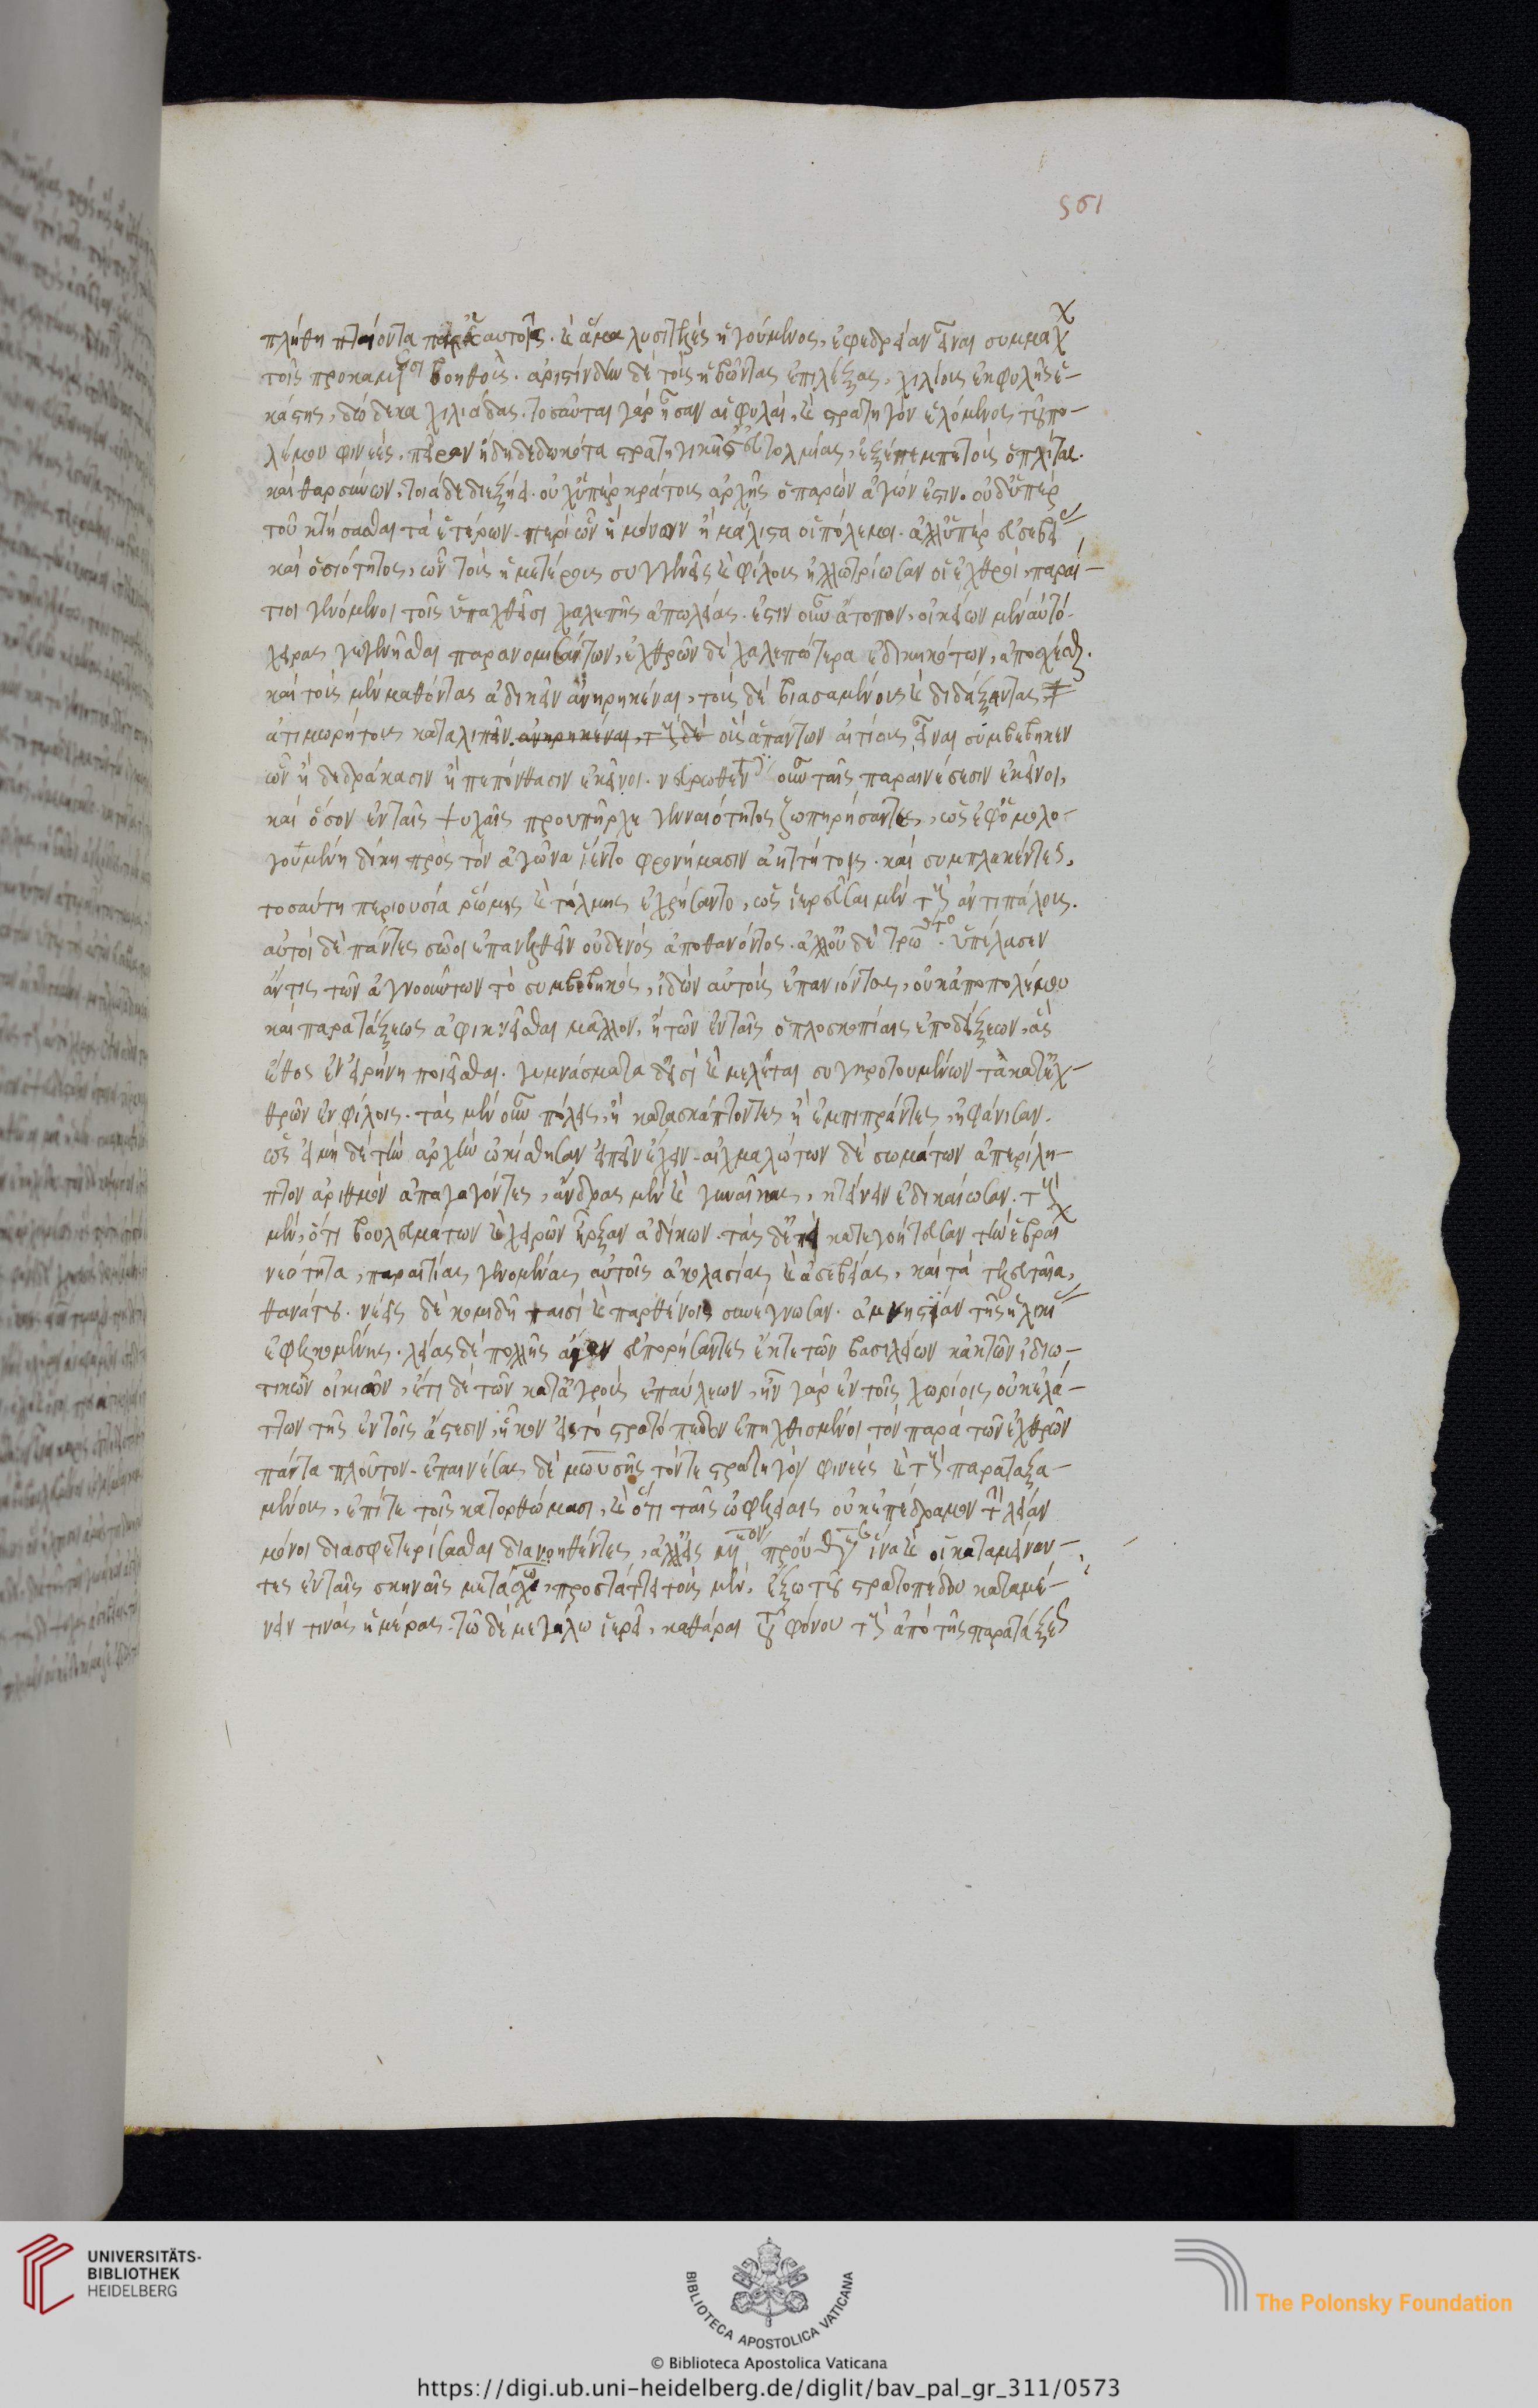 561
πλήθη πταίοντα παρ' αυτοῖς. καὶ ἅμα λυσιτελὲς ἡγούμενος, ἐφεδρείαν εἶναι συμμαχ
τοῖς προκαμοῦσι βοηθοὺς. ἀριστίνδην δὲ τοὺς ἡβῶντας ἐπιλέξας, χιλίους ἐκ φυλῆς ἑ-
κάστης, δώδεκα χιλιάδας. τοσαῦται γὰρ ἦσαν αἱ φυλαί, καὶ στρατηγὸν ἑλόμενος τοῦ πο-
λέμου φινεές, πεῖραν ἤδη δεδωκότα στρατηγικῆς εὐτολμίας, ἐξέπεμπε τοὺς ὁπλίτας.
καὶ θαρσύνων, τοιάδε διεξῄει. οὐχ ὑπὲρ κράτους ἀρχῆς ὁ παρὼν ἀγών ἐστιν. οὐδ' ὑπὲρ
τοῦ κτήσασθαι τὰ ἑτέρων. περὶ ὧν ἢ μόνων ἢ μάλιστα οἱ πόλεμοι. ἀλλ' ὑπὲρ εὐσεβεί
καὶ ὁσιότητος, ὧν τοὺς ἡμετέρους συγγενεῖς καὶ φίλους ἠλλοτρίωσαν οἱ ἐχθροί, παραί-
τιοι γενόμενοι τοῖς ὑπαχθεῖσι χαλεπῆς ἀπωλείας. ἔστιν οὖν ἄτοπον, οἰκείων μὲν αὐτό-
χειρας γεγενῆσθαι παρανομησάντων, ἐχθρῶν δὲ χαλεπώτερα ἠδικηκότων, ἀποσχέσθαι.
καὶ τοὺς μὲν μαθόντας ἀδικεῖν ἀνῃρηκέναι, τοὺς δὲ βιασαμένους καὶ διδάξαντας,
ἀτιμωρήτους καταλιπεῖν. ἀνῃρηκέναι, τοὺς δὲ οἷς ἁπάντων αἰτίους εἶναι συμβέβηκεν
ὧν ἢ δεδράκασιν ἢ πεπόνθασιν ἐκεῖνοι. νευρωθέντες οὖν ταῖς παραινέσεσιν ἐκεῖνοι,
καὶ ὅσον ἐν ταῖς ψυχαῖς προυπῆρχε γενναιότητος ζωπυρήσαντες, ὡς ἐφ' ὁμολο-
γουμένῃ δίκῃ πρὸς τὸν ἀγῶνα ἵεντο φρονήμασιν ἀηττήτοις. καὶ συμπλακέντες,
τοσαύτῃ περιουσίᾳ ῥώμης καὶ τόλμης ἐχρήσαντο, ὡς ἱερεῦσαι μὲν τοὺς ἀντιπάλους.
αὐτοὶ δὲ πάντες σῶοι ἐπανελθεῖν οὐδενὸς ἀποθανόντος. ἀλλ' οὐδὲ τρωθέντος. ὑπέλασεν
ἄν τις τῶν ἀγνοούντων τὸ συμβεβηκός, ἰδὼν αὐτοὺς ἐπανιόντας, οὐκ ἀπὸ πολέμου
καὶ παρατάξεως ἀφικνεῖσθαι μᾶλλον, ἢ τῶν ἐν ταῖς ὁπλοσκοπίαις ἐποδείξεων, ἃς
ἔθος ἐν εἰρήνῃ ποιεῖσθαι. γυμνάσματα δ' εἰσὶ καὶ μελέται συγκροτουμένων τὰ κατ' ἐχ-
θρῶν ἐν φίλοις. τὰς μὲν οὖν πόλεις, ἢ κατασκάπτοντες ἢ ἐμπιπράντες, ἠφάνισαν.
ὡς εἰ μὴ δὲ τὴν ἀρχὴν ᾠκίσθησαν εἰπεῖν ἔχειν. αἰχμαλώτων δὲ σωμάτων ἀπερίλη-
πτον ἀριθμὸν ἀπαγαγόντες, ἄνδρας μὲν καὶ γυναῖκας, κτείνειν ἐδικαίωσαν. τοὺς
μὲν, ὅτι βουλευμάτων καὶ χειρῶν ἦρξαν ἀδίκων. τὰς δ' ἐπεὶ κατεγοήτευσαν τὴν ἑβραί
νεότητα, παραιτίας γενομένας αὐτοῖς ἀκολασίας καὶ ἀσεβείας, καὶ τὰ τελευταῖα,
θανάτου. νέοις δὲ κομιδῇ παισὶ καὶ παρθένοις συνέγνωσαν. ἀμνηστίαν τῆς ἡλικί
ἐφελκομένης. λείας δὲ πολλῆς ἄγαν εὐπορήσαντες ἔκ τε τῶν βασιλείων κἀκ τῶν ἰδιω-
τικῶν οἰκιῶν, ἔτι δὲ τῶν κατ' ἀγροὺς ἐπαύλεων, ἦν γὰρ ἐν τοῖς χωρίοις οὐκ ἐλά-
ττων τῆς ἐν τοῖς ἄστεσιν, ἧκον εἰς τὸ στρατόπεδον ἐπηχθισμένοι τὸν παρὰ τῶν ἐχθρῶν
πάντα πλοῦτον. ἐπαινέσας δὲ μωυσῆς τόν τε στρατηγὸν φινεές καὶ τοὺς παραταξα-
μένους, ἐπί τε τοῖς κατορθώμασι, καὶ ὅτι ταῖς ὠφελείαις οὐκ ἐπέδραμον τὴν λείαν
μόνοι διασφετερίσασθαι διανοηθέντες, ἀλλ' εἰς μέσον προύθεσαν ἵνα καὶ οἱ καταμείναν-
τες ἐν ταῖς σκηναῖς μετάσχωσι, προστάττει τοὺς μὲν, ἔξω τοῦ στρατοπέδου καταμέ-
νειν τινὰς ἡμέρας. τῷ δὲ μεγάλῳ ἱερεῖ, καθᾶραι τοῦ φόνου τοὺς ἀπὸ τῆς παρατάξεως
UNIVERSITÄTS-
BIBLIOTHEK
HEIDELBERG
BIBLIOTECA APOSTOLICA VATICANA
The Polonsky Foundation
© Biblioteca Apostolica Vaticana
https://digi.ub.uni-heidelberg.de/diglit/bav_pal_gr_311/0573